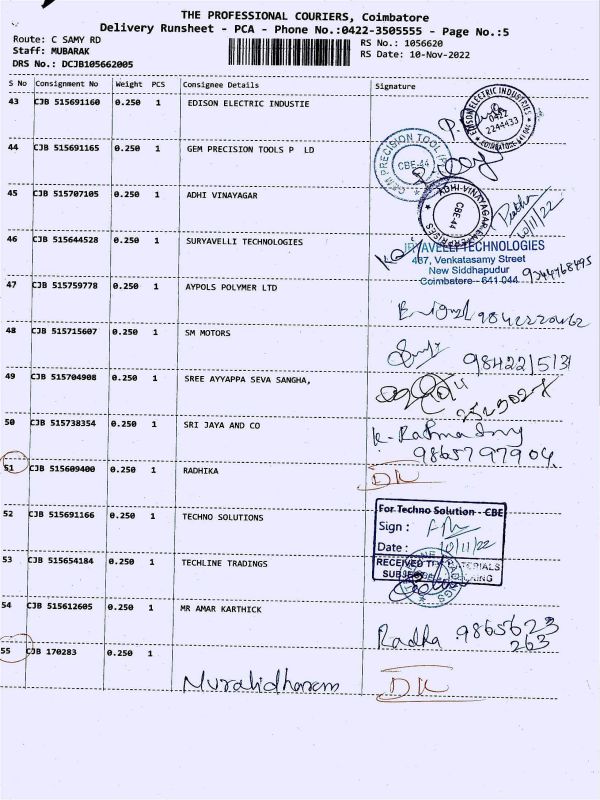 THE PROFESSIONAL COURIERS, Coimbatore
Delivery Runsheet - PCA - Phone No.:0422-3505555 - Page No.:5
Route: C SAMY RD
RS No.: 1056620
Staff: MUBARAK
RS Date: 10-Nov-2022
DRS No.: DCJB105662005
S No Consignment No Weight PCS Consignee Details Signature
43 CJB 515691160 0.250 1 EDISON ELECTRIC INDUSTIE
EDISON ELECTRIC INDUSTRIES
0422
2244433
COIMBATORE-641 044
44 CJB 515691165 0.250 1 GEM PRECISION TOOLS P LD
GEM PRECISION TOOL
CBE-44
45 CJB 515707105 0.250 1 ADHI VINAYAGAR
ADHI-VINAYAGAR ENTERPRISES
CBE-44
10/11/22
46 CJB 515644528 0.250 1 SURYAVELLI TECHNOLOGIES
RYAVELLI TECHNOLOGIES
487, Venkatasamy Street
New Siddhapudur
Coimbatore - 641 044
9344768495
47 CJB 515759778 0.250 1 AYPOLS POLYMER LTD
48 CJB 515715607 0.250 1 SM MOTORS
9842215131
49 CJB 515704908 0.250 1 SREE AYYAPPA SEVA SANGHA,
50 CJB 515738354 0.250 1 SRI JAYA AND CO
9865797904.
51 CJB 515609400 0.250 1 RADHIKA
DK
52 CJB 515691166 0.250 1 TECHNO SOLUTIONS
For Techno Solution - CBE
Sign :
Date : 10/11/22
RECEIVED
53 CJB 515654184 0.250 1 TECHLINE TRADINGS
54 CJB 515612605 0.250 1 MR AMAR KARTHICK
Radha 9865623
263
55 CJB 170283 0.250 1
Muralidharan DK